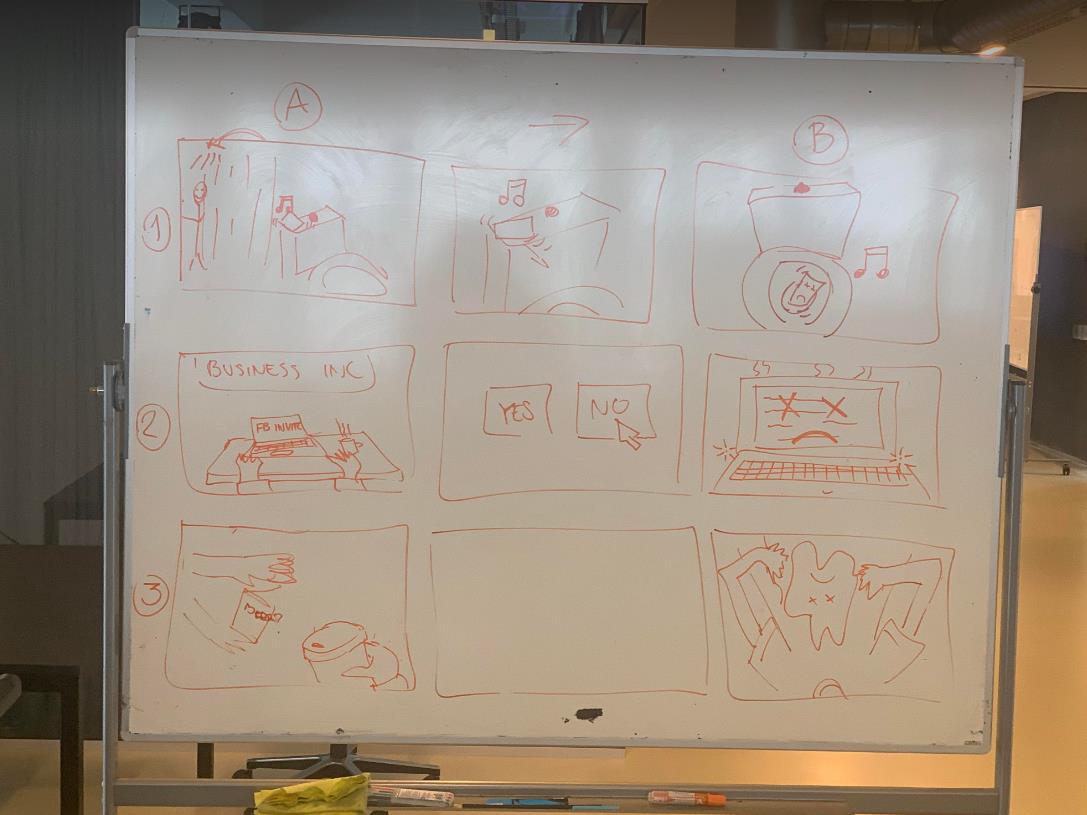 A
→
B
1
BUSINESS INC
2
FB INVITE
YES
NO
3